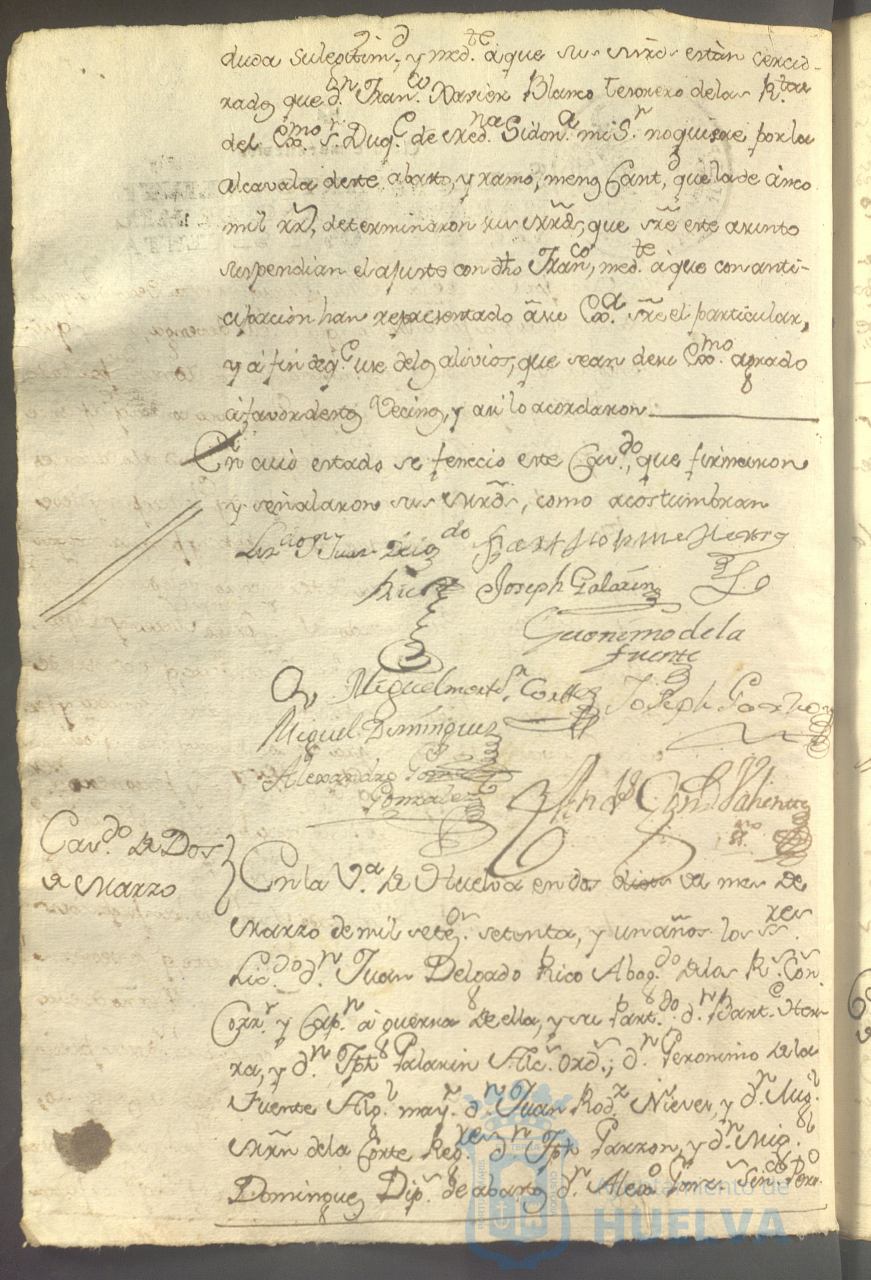 duda su lexitim.d, y med.te a que sus mrds están cercio-
rados que d.n Fran.co Xavier Blanco Tesorero de las R.tas
del Exc.mo S.r Duq.e de Med.na Sidon.a mi S.r no quiere por la
alcavala de este abasto, y ramo, menos Cant.d, que la de cinco
mil rr.s, determinaron sus mrds, que sre este asunto
suspendian el ajuste con dho Fran.co, med.te a que con anti-
cipacion han representado a su Ex.a sre el particular,
y a fin de q.e use de los alivios, que sean de su Ex.mo agrado
a favor de estos Vecinos, y asi lo acordaron
En cuio estado se fenecio este Cav.do, que firmaron
y señalaron sus mrds, como acostumbran
Liz.do D.n Juan Delg.do Bartholome Herrera
Rico Joseph Galarin
Geronimo de la
fuente
Miguel mart.n Cortes Joseph Garzon
Miguel Dominguez
Alexandro Gomez
Gonzales
Valiente
Cav.do de Dos
de Marzo
En la V.a de Huelva en dos dias del mes de
Marzo de mil sete.os setenta, y un años los ss.res
Lic.do d.n Juan Delgado Rico Abog.do de los R.s Con.s
Corr.r y Cap.n a guerra de ella, y su Part.do d.n Bart.e Herre-
ra, y d.n Jph Galarin Alc.s Ord.s; d.n Geronimo de la
Fuente Alg.l may.r d.n Juan Rod.z Nieves, y d.n Mig.l
Mrn de la Corte Reg.res d.n Jph Garzon, y d.n Mig.l
Dominguez Dip.s de abastos d.n Alex.o Gomz Sin.co Perso.
Ayuntamiento de
HUELVA